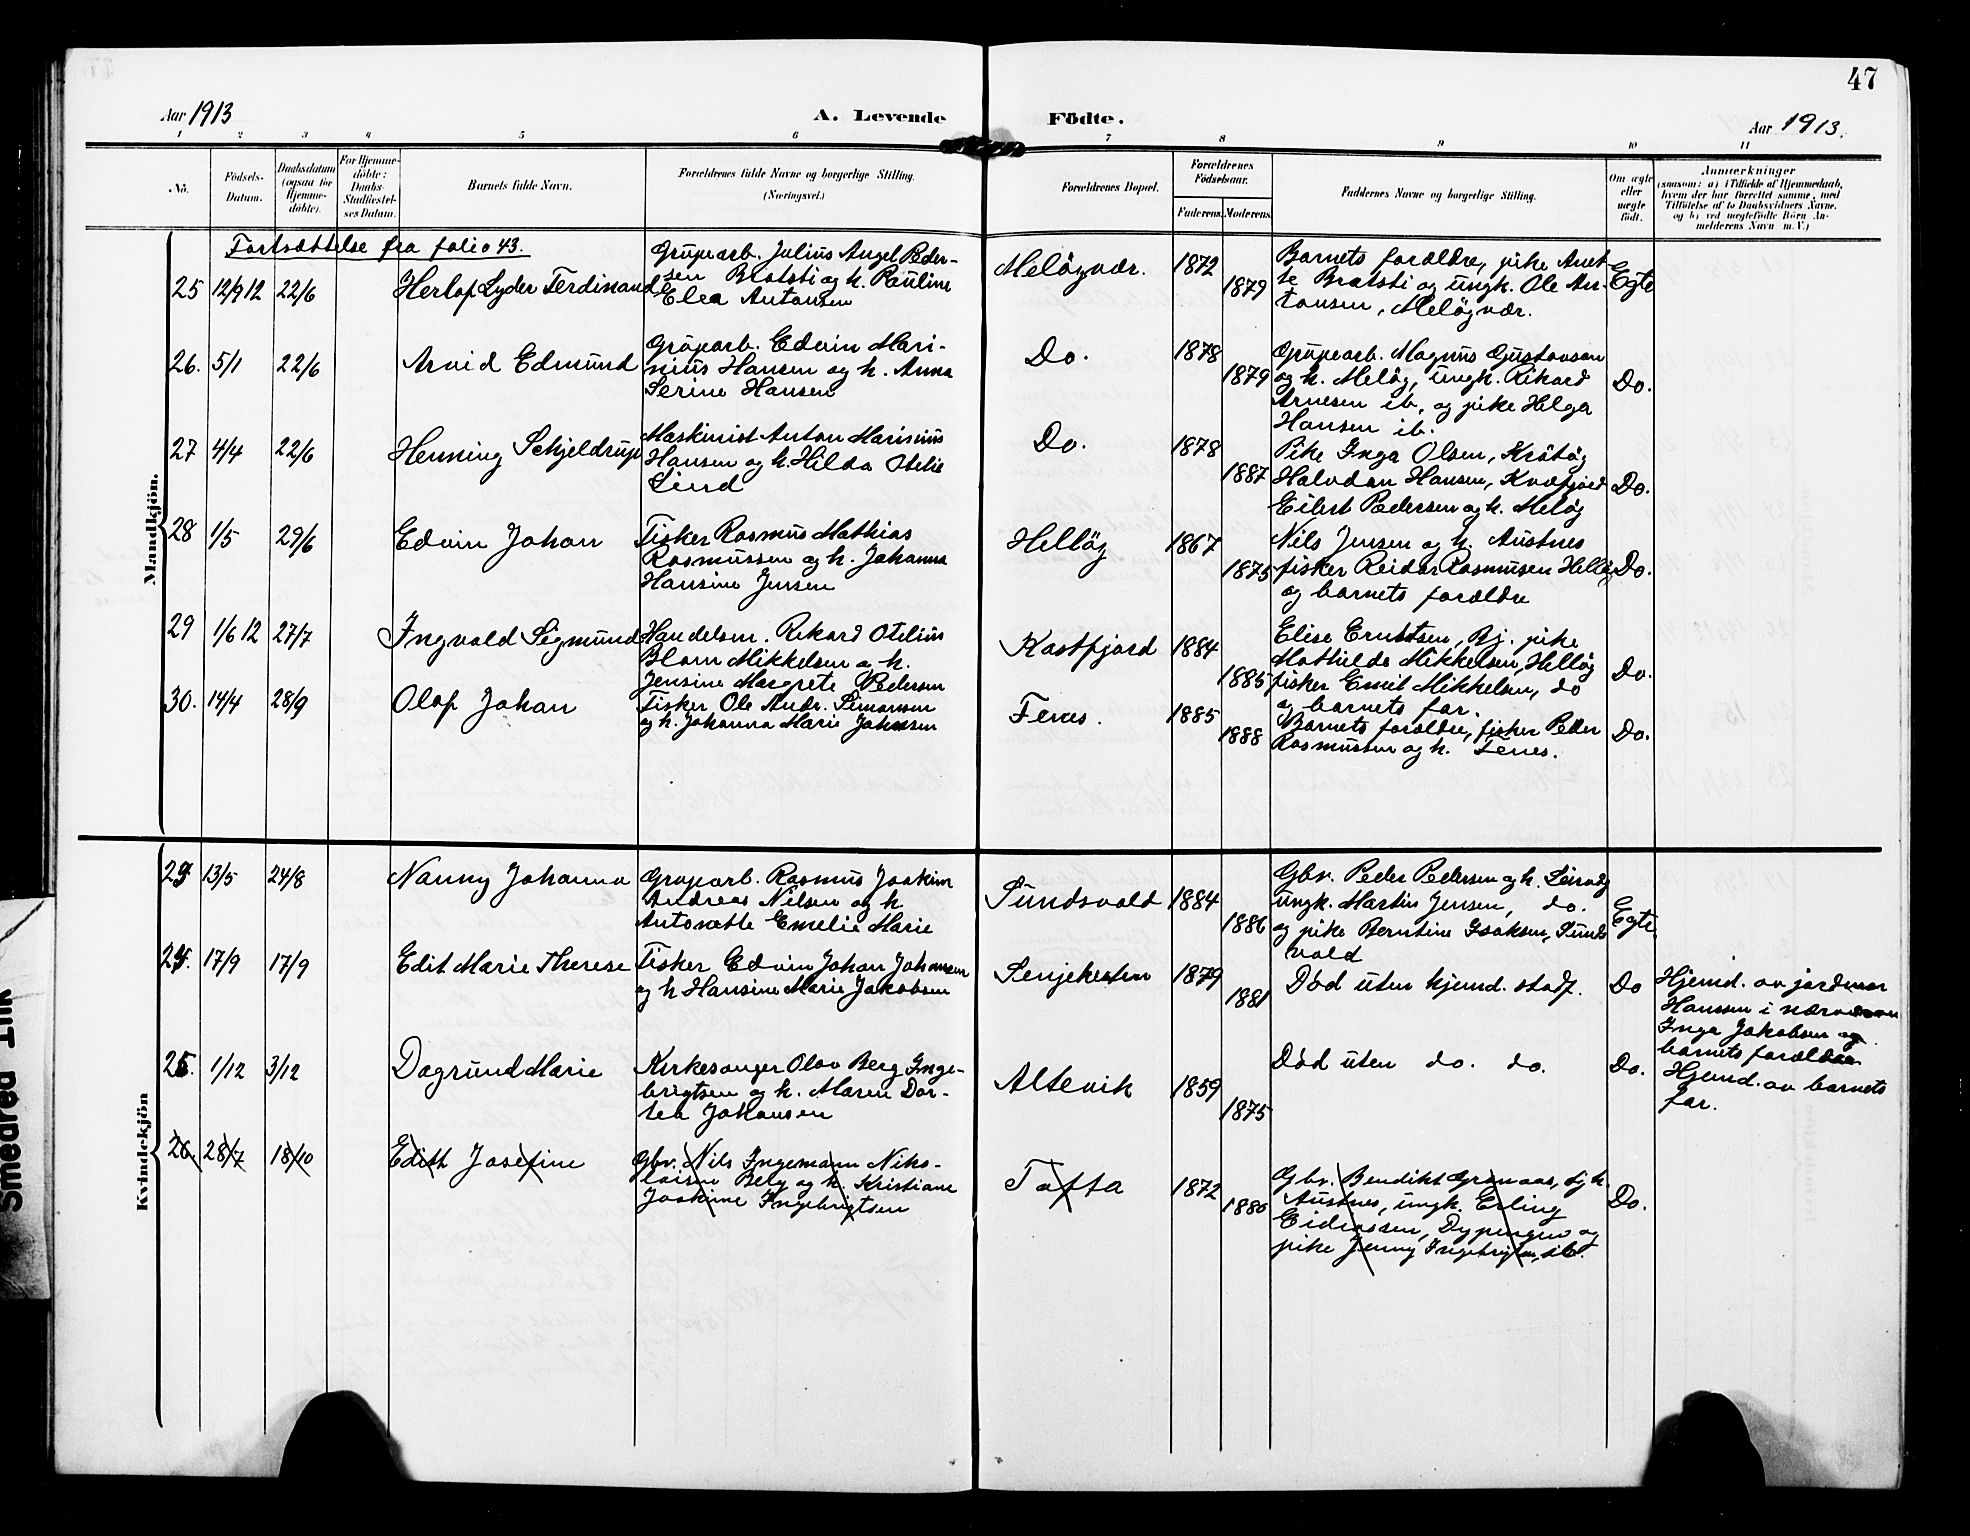 47
Aar 1913
A. Levende
Födte.
Aar 1913.
1 2 3 4 5 6 7 8 9 10 11
Nö.
Födsels-
Datum.
Daabsdatum
(ogsaa for
Hjemme-
döbte).
For Hjemme-
döbte:
Daabs-
Stadfæstel-
ses Datum.
Barnets fulde Navn.
Forældrenes fulde Navne og borgerlige Stilling.
(Næringsvei.)
Forældrenes Bopæl.
Forældrenes
Födselsaar.
Faderens.
Moderens.
Faddernes Navne og borgerlige Stilling.
Om ægte
eller
uægte
født.
Anmærkninger
(saasom: a) i Tilfælde af Hjemmedaab,
hvem der har forrettet samme, med
Tilföielse af to Daabsvidners Navne,
og b) ved uegtefödte Börn An-
melderens Navn m. V.)
Mandkjön.
Fortsættelse fra folio 43.
25 12/9 12 22/6
Herlof Lyder Ferdinand
Grupearb. Julius Angel Peder-
sen Bratsti og h. Pauline
Elea Antonsen
Meløyvær.
1872
1879
Barnets forældre, pike Anet-
te Bratsti og ungk. Ole An-
tonsen, Meløyvær.
Egte
26. 5/1 22/6
Arvid Edmund
Gruparb. Edvin Mari-
nius Hansen og h. Anna
Serine Hansen
Do.
1878
1879
Grupearb. Magnus Gustavsen
og h. Meløy, ungk. Rikard
Arnesen ib, og pike Helga
Hansen ib.
Do.
27 4/4 22/6
Henning Schjeldrup
Maskinist Anton Marinius
Hansen og h. Hilda Otelie
Lind
Do.
1878
1887
Pike Inga Olsen, Krøtøy
Halvdan Hansen, Kvæfjord
Eilert Pedersen og h. Meløy
Do.
28 1/5 29/6
Edvin Johan
Fisker Rasmus Mathias
Rasmussen og h. Johanna
Hansine Jensen
Helløy
1867
1875
Nils Jensen og h. Austnes
fisker Reidar Rasmusen Helløy
og barnets forældre
Do.
29 1/6 12 27/7
Ingvald Sigmund
Handelsm. Rikard Otelius
Blom Mikkelsen o h.
Jensine Margrete Pedersen
Kastfjord
1884
1885
Elise Erntsen, Bj. pike
Mathilde Mikkelsen, Helløy
fisker Emil Mikkelsen, do
og barnets far.
Do.
30. 14/4 28/9
Olaf Johan
Fisker Ole Andr. Simonsen
og h. Johanna Marie Johnsen
Fenes.
1885
1888
Barnets forældre, fisker Peder
Rasmussen og h. Fenes.
Do.
Kvindekjön
23 13/5 24/8
Nanny Johanna
Gruparb. Rasmus Joakim
Andreas Nilsen og h.
Antonette Emelie Marie
Sundsvold
1884
1886
Gbr. Peder Pedersen og h. Leirvåg
ungk. Martin Jensen, do.
og pike Berntine Isaksen, Sunds
vold
Egte.
24. 17/9 17/9
Edit Marie Therese
Fisker Edvin Johan Johansen
og h Hansine Marie Jakobsen
Senjehesten
1879
1881
Død uten hjemd. stadf.
Do
Hjemd. av jordmor
Hanssen i nærværen
Inga Jakobsen og
barnets forældre
25. 1/12 3/12
Dagrund Marie
Kirkesanger Olav Berg Inge-
brigtsen og h. Maren Dor-
tea Johansen
Altevik
1859
1875
Død uten do. do.
Do.
Hjemd. av barnets
far.
26. 28/7 18/10
Edith Josefine
Gbr. Nils Ingemann Niko-
laisen Berg og h. Kristiane
Joakime Ingebrigtsen
Tofta
1872
1880
Gbr. Bendikt Grønaas, og h.
Austnes, ungk. Erling
Eidnssen, Dypingen og
pike Jenny Ingebrigtsen, ib.
Do.
Smedred Ink